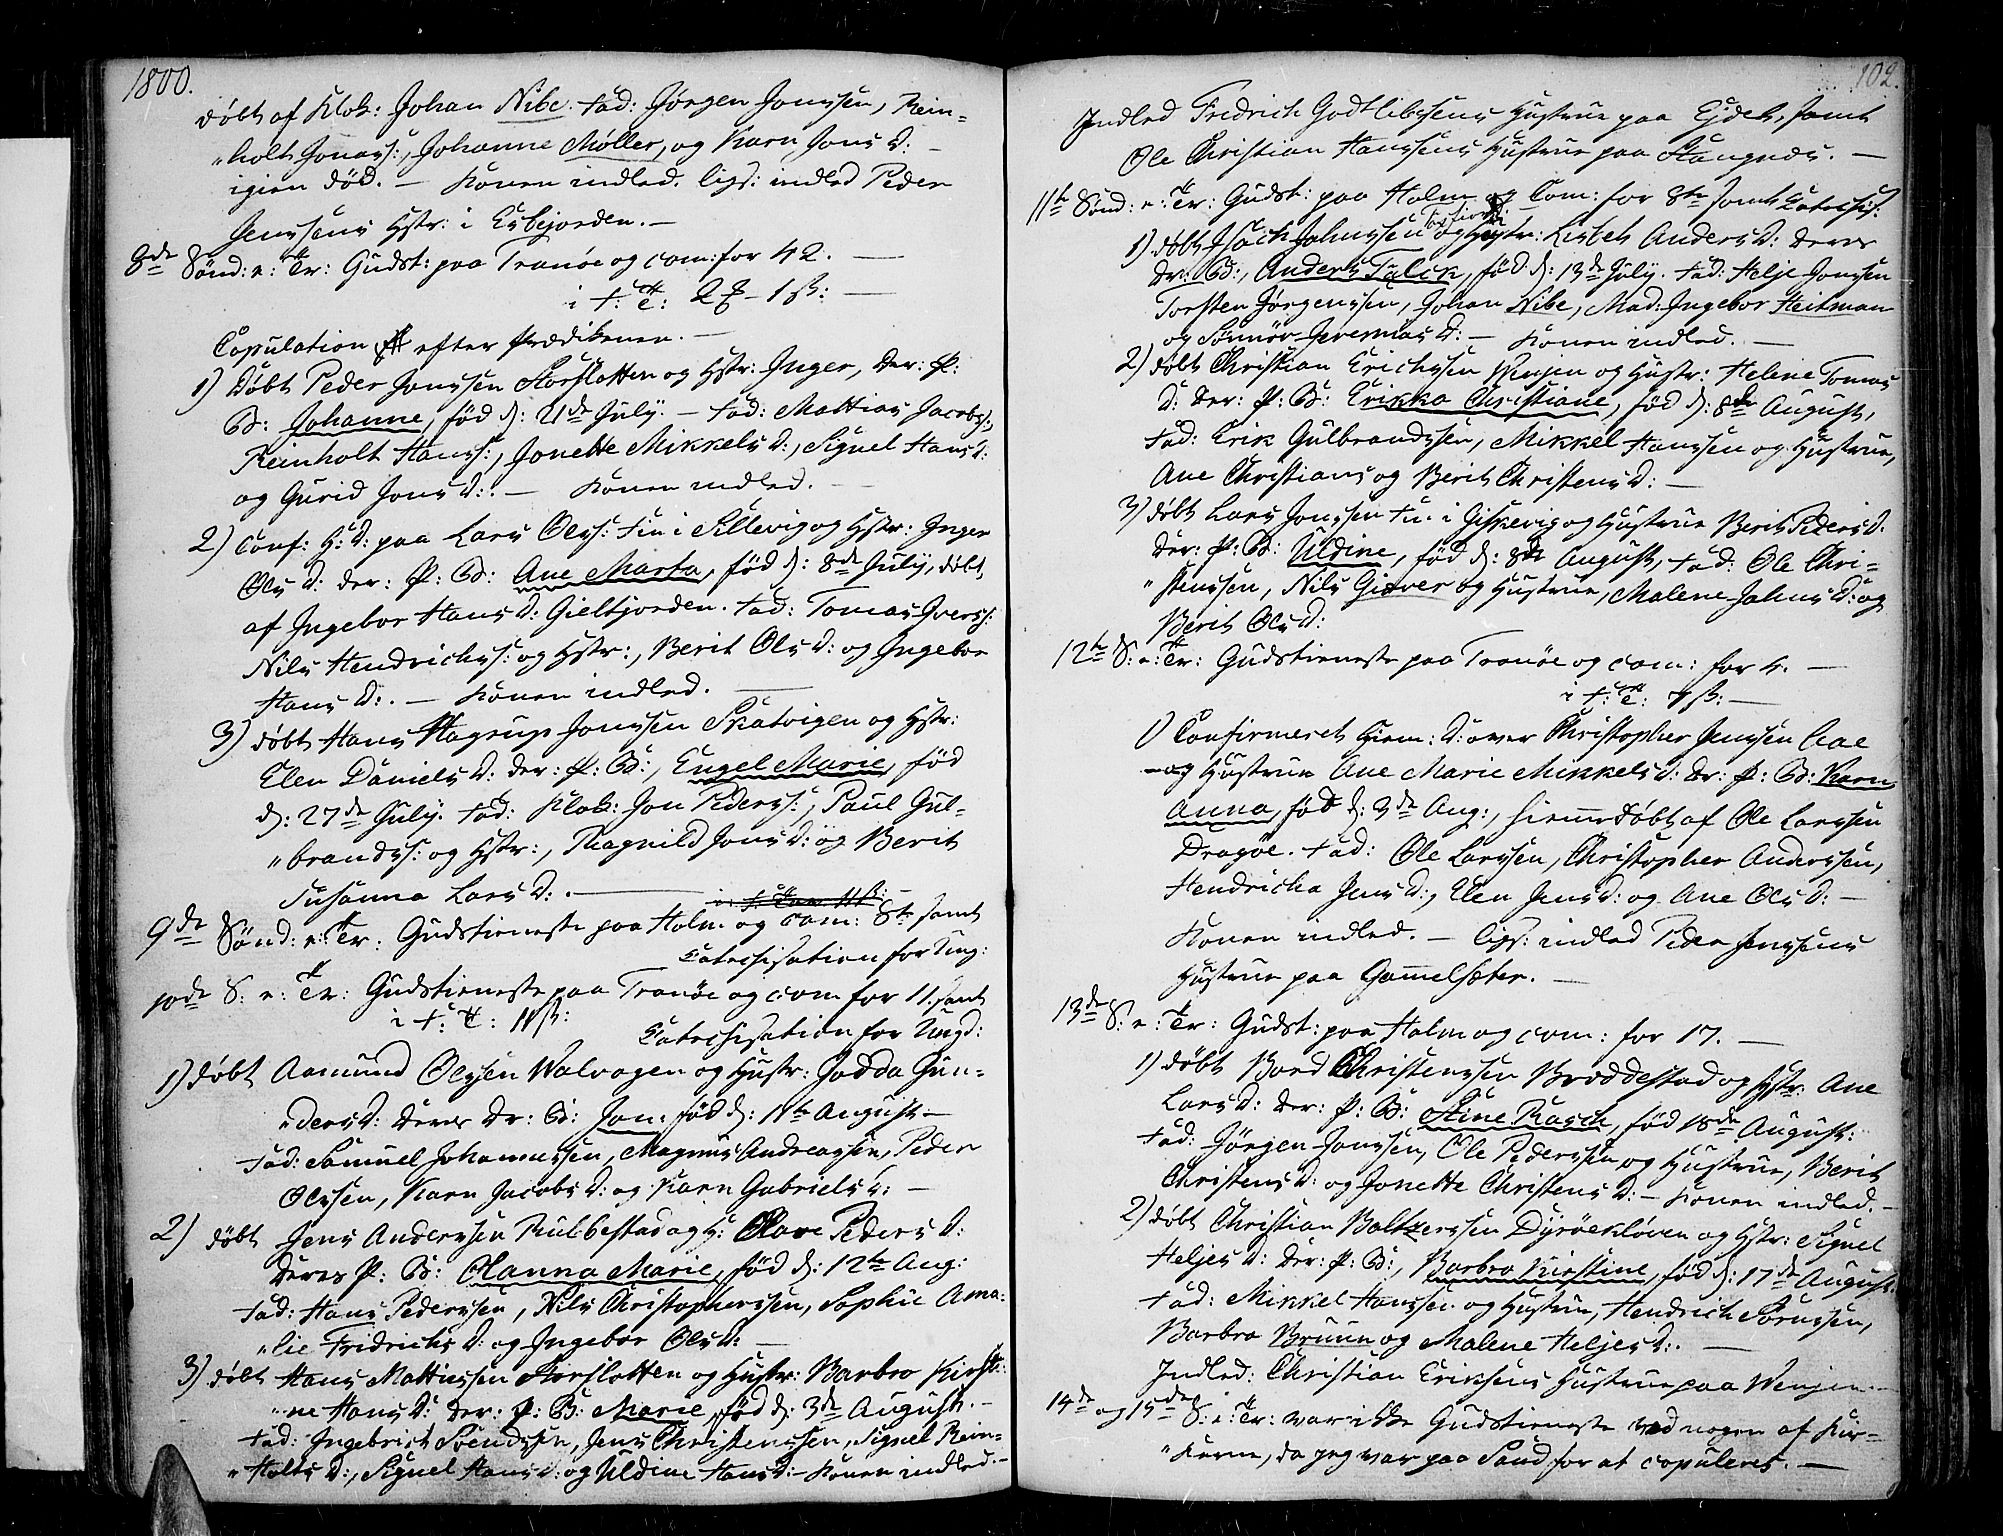 1800.
døbt af Klok: Johan Nibe. Fad: Jørgen Jonssen, Rein=
"holt Jonas:, Johanne Møller, og Karn Jons D: –
igien død. – Konen indled. ligs: indled Peder
Jenssens Hstr: i Esbejorden. –
8de Sønd: e: Tr: Gudst: paa Tranøe og com: for 42. –
i F: C: 2 – 1 ß: –
Copulation efter Prædikenen. –
1) Døbt Peder Jonssen Storslotten og Hstr: Inger, der: P:
B: Johanne, fød d: 21de July. – Fad: Mattias Jacobs:,
Reinholt Hans:, Jonette Mikkels D:, Signel Hans D:
og Gurid Jons D:. – Konen indled. –
2) Conf: H: D: paa Lars Ols: Fin i Sillevig og Hstr: Inger
Ols D: der: P: B: Ane Marta, fød d: 8de July, døbt
af Ingebor Hans D: Gieltfjorden. Fad: Tomas Ivers:
Nils Hendrichs: og Hstr:, Berit Ols D: og Ingebor
Hans D:. – Konen indled. –
3) døbt Hans Hagrup Jonssen Skatvigen og Hstr:
Elen Daniels D: der: P: B:, Engel Marie, fød
d: 27de July. Fad: Klok: Jon Peders:, Paul Gul=
"brands: og Hstr:, Ragnild Jons D: og Berit
Susanna Lars D:. –
9de Sønd: e: Tr: Gudstieneste paa Holm og com: 8te samt
Catechisation for Ung:
10de S: e: Tr: Gudstieneste paa Tranøe og com for 11. samt
i F: C: 11 ß: Catechisation for Ungd:
1) døbt Aamund Olssen Walvagen og Hustr: Jadda Gun=
"ders D: deres Dr: B: Jon. fød d: 11te August –
Fad: Samuel Johannessen, Magnus Andreassen, Peder
Olssen, Karn Jacobs D: og Karn Gabriels D: –
2) døbt Jens Anderssen Kulbestad og H: Olave Peders D:
deres P: B: Olanna Marie, fød d: 12te Aug:
Fad: Hans Pederssen, Nils Christopherssen, Sophie Ama=
"lie Fridrichs D: og Ingebor Ols D: –
3) døbt Hans Mattissen Storslotten og Hustr: Barbro Kirsti=
"ne Hans D: der: P: B: Marie, fød d: 3de August. –
Fad: Ingebrict Svendssen, Jens Christenssen, Signel Rein=
"holts D:, Signel Hans D: og Uldine Hans D: – Konen indled. –
102.
Indled Fredrich Godtlibssens Hustrue paa Ejdet, samt
Ole Christian Hanssens Hustrue paa Stangnæs. –
11te Sønd: e: Tr: Gudst: paa Holm og Com: for 8te samt Catechis:
1) døbt Isach Johnssen og Hustr: Lisbet Anders D: deres
Dr: B:, Anders Falck, fød d: 13de July. Fad: Helje Jonssen
Torsten Jørgenssen, Johan Nibe, Mad: Ingebor Heitman
og Sønnør Jeremias D: – Konen indled. –
2) døbt Christian Erichssen Wenjen og Hustr: Helene Tomas
D: der: P: B: Erikka Christiane, fød d: 8de August,
Fad: Erik Gulbrandssen, Mikkel Hanssen og Hustrue,
Ane Christians og Berit Christens D: –
3) døbt Lars Jonssen Fin i Giskevig og Hustrue Berit Peders D:
der: P: B: Uldine, fød d: 8de August, Fad: Ole Chri=
"stenssen, Nils Giæver og Hustrue, Malene Johns D: og
Berit Ols D:
12te S: e: Tr: Gudstieneste paa Tranøe og com: for 4. –
i F: C: 4 ß: –
1) Confirmeret Hiem: D: over Christopher Jenssen Aae
og Hustrue Ane Marie Mikkels D: dr: P: B: Karn
Anna, fød d: 3de Aug:, hiemmedøbt af Ole Larssen
Dragøe. Fad: Ole Larssen, Christopher Anderssen,
Hendricka Jens D:, Elen Jens D: og Ane Ols D: –
Konen indled. – ligs: indled Peder Jenssens
Hustrue paa Gamelsæter. –
13de S: e: Tr: Gudst: paa Holm og com: for 17. –
1) døbt Baard Christenssen Brøddestad og Hstr: Ane
Lars D: der: P: B: Stine Rasch, fød 18de August:
Fad: Jørgen Jonssen, Ole Pederssen og Hustrue, Berit
Christens D: og Jonette Christens D: – Konen indled. –
2) døbt Christian Baltzerssen Dyrøekløven og Hstr: Signel
Heljes D: der: P: B:, Barbro Kirstine, fød d: 17de August.
Fad: Mikkel Hanssen og Hustrue, Hendrich Sørenssen,
Barbro Bruun og Malene Heljes D:. –
Indled: Christian Eriksens Hustrue paa Wenjen. –
14de og 15de S: e: Tr: var ikke Gudstieneste ved nogen af Kir=
"kerne, da jeg var paa Sand for at copuleres. –